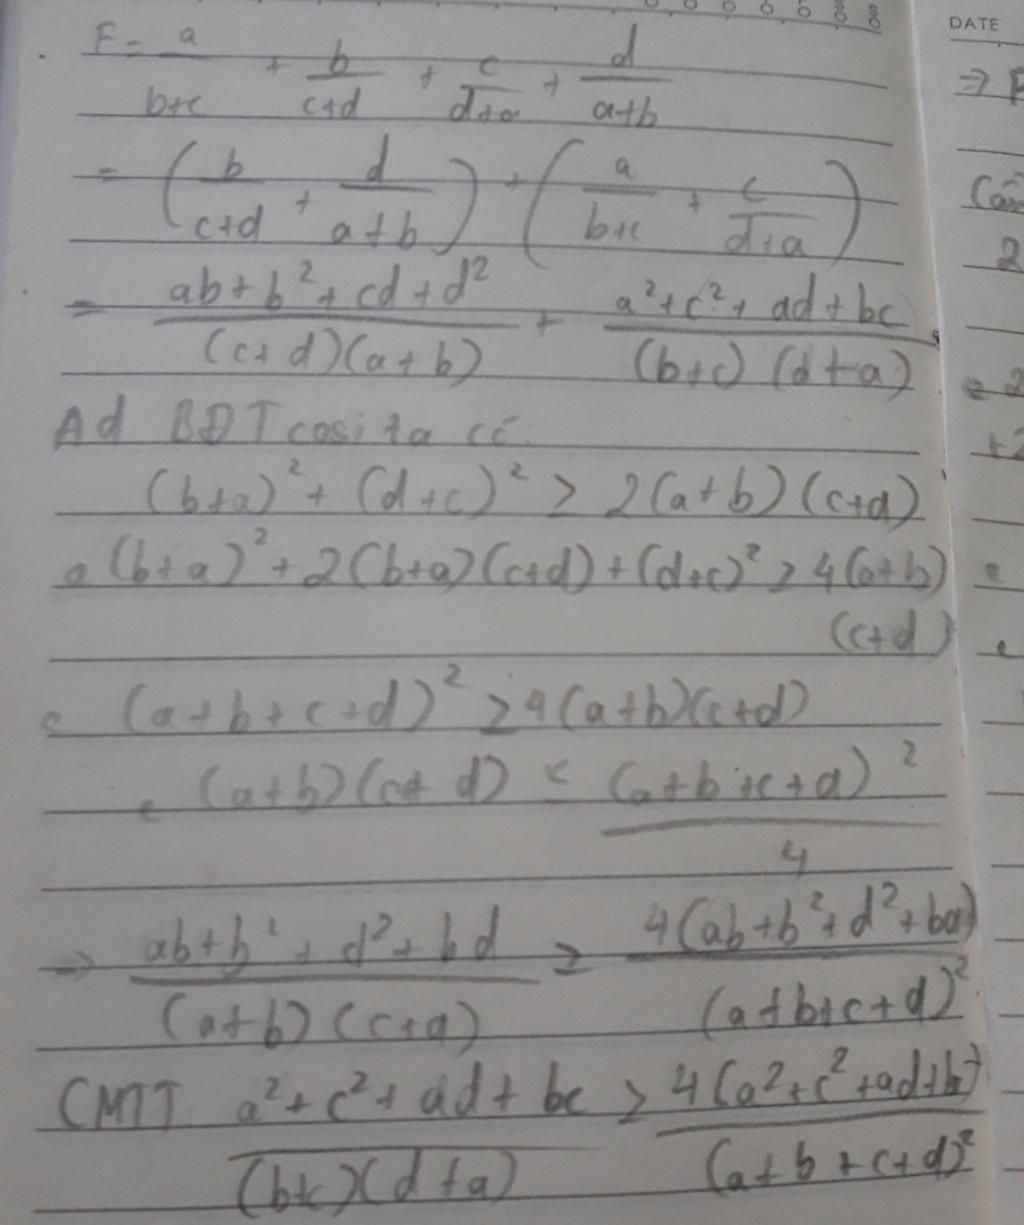 DATE
F = a/(b+c) + b/(c+d) + c/(d+a) + d/(a+b)
= (b/(c+d) + d/(a+b)) + (a/(b+c) + c/(d+a))
= (ab+b²+cd+d²)/((c+d)(a+b)) + (a²+c²+ad+bc)/((b+c)(d+a))
Ad BĐT cosi ta có
(b+a)² + (d+c)² ≥ 2(a+b)(c+d)
(b+a)² + 2(b+a)(c+d) + (d+c)² ≥ 4(a+b)
(c+d)
(a+b+c+d)² ≥ 4(a+b)(c+d)
(a+b)(c+d) ≤ (a+b+c+d)²/4
⇒ (ab+b²+d²+bd)/((a+b)(c+d)) ≥ 4(ab+b²+d²+bd)/(a+b+c+d)²
CMTT (a²+c²+ad+bc)/((b+c)(d+a)) ≥ 4(a²+c²+ad+bc)/(a+b+c+d)²